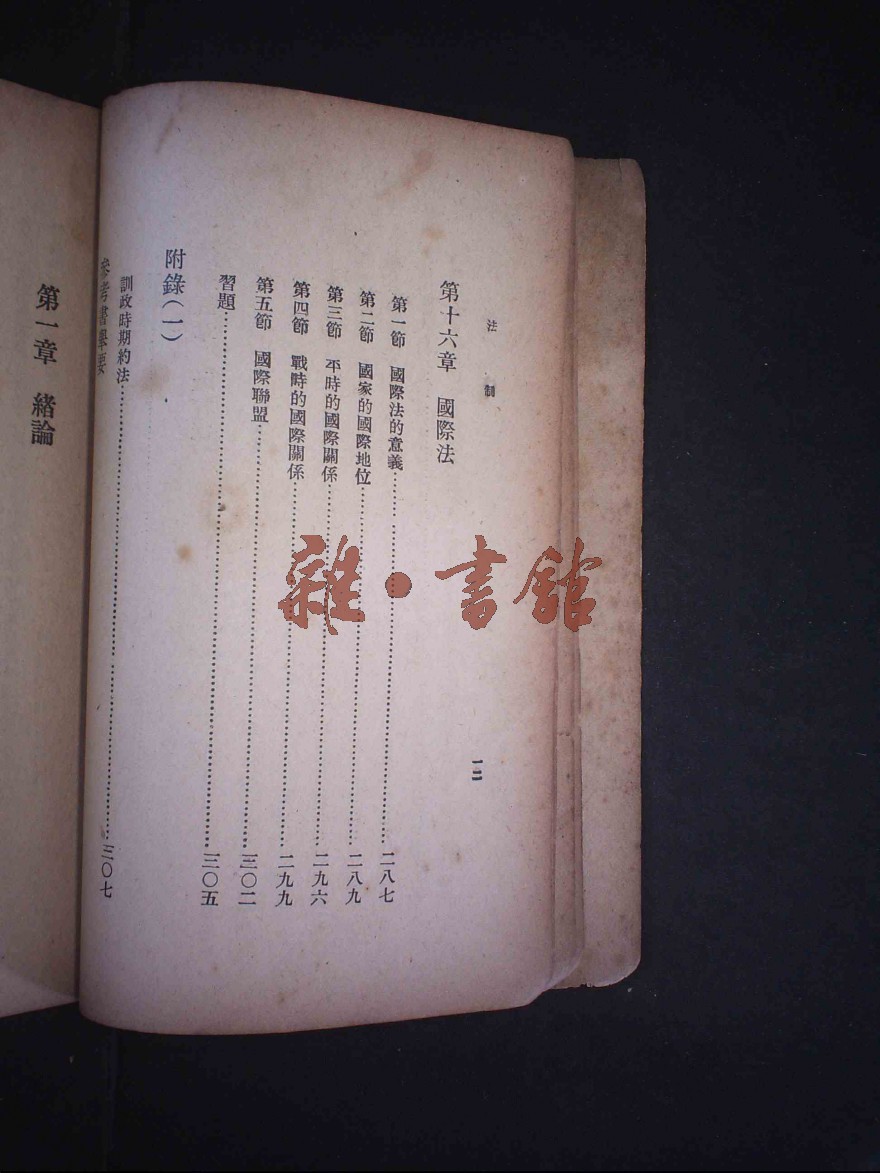 法制
一二
第十六章 國際法
第一節 國際法的意義……二八七
第二節 國家的國際地位……二八九
第三節 平時的國際關係……二九六
第四節 戰時的國際關係……二九九
第五節 國際聯盟……三〇二
習題……三〇五
附錄(一)
訓政時期約法……三〇七
參考書舉要
第一章 緒論
雜·書館